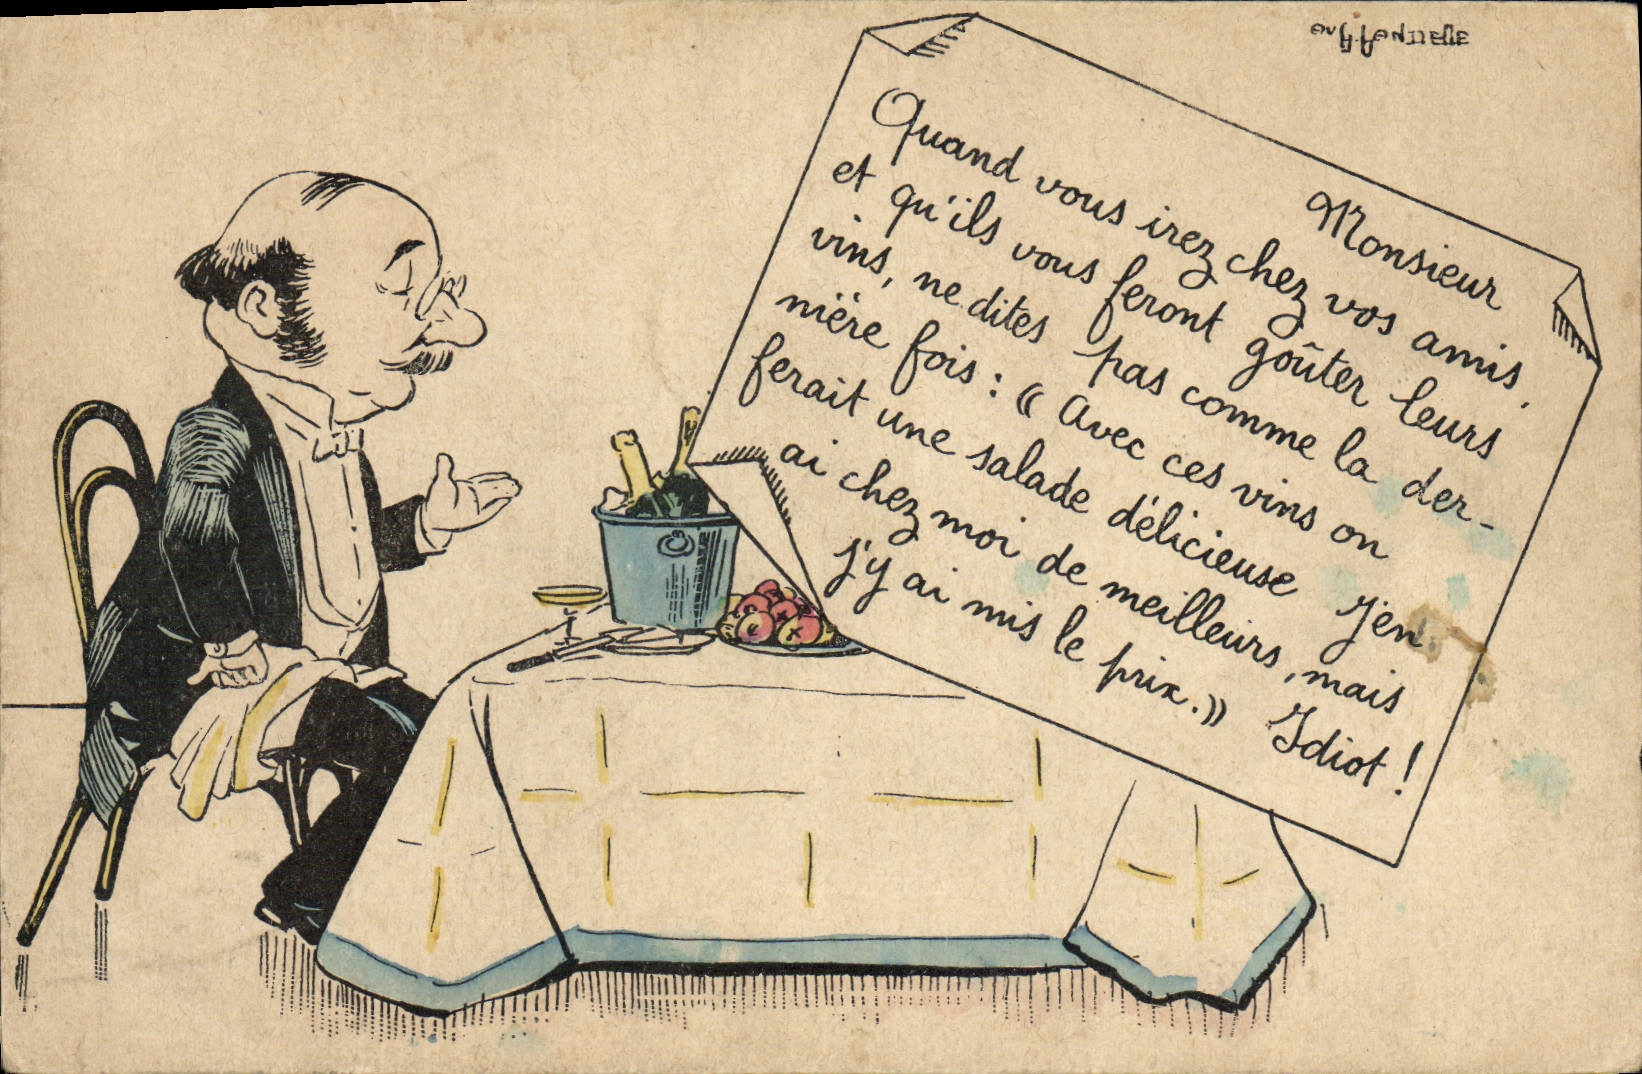 Monsieur
Quand vous irez chez vos amis,
et qu'ils vous feront goûter leurs
vins, ne dites pas comme la der-
nière fois : « Avec ces vins on
ferait une salade délicieuse J'en
ai chez moi de meilleurs, mais
j'y ai mis le prix. » Idiot !